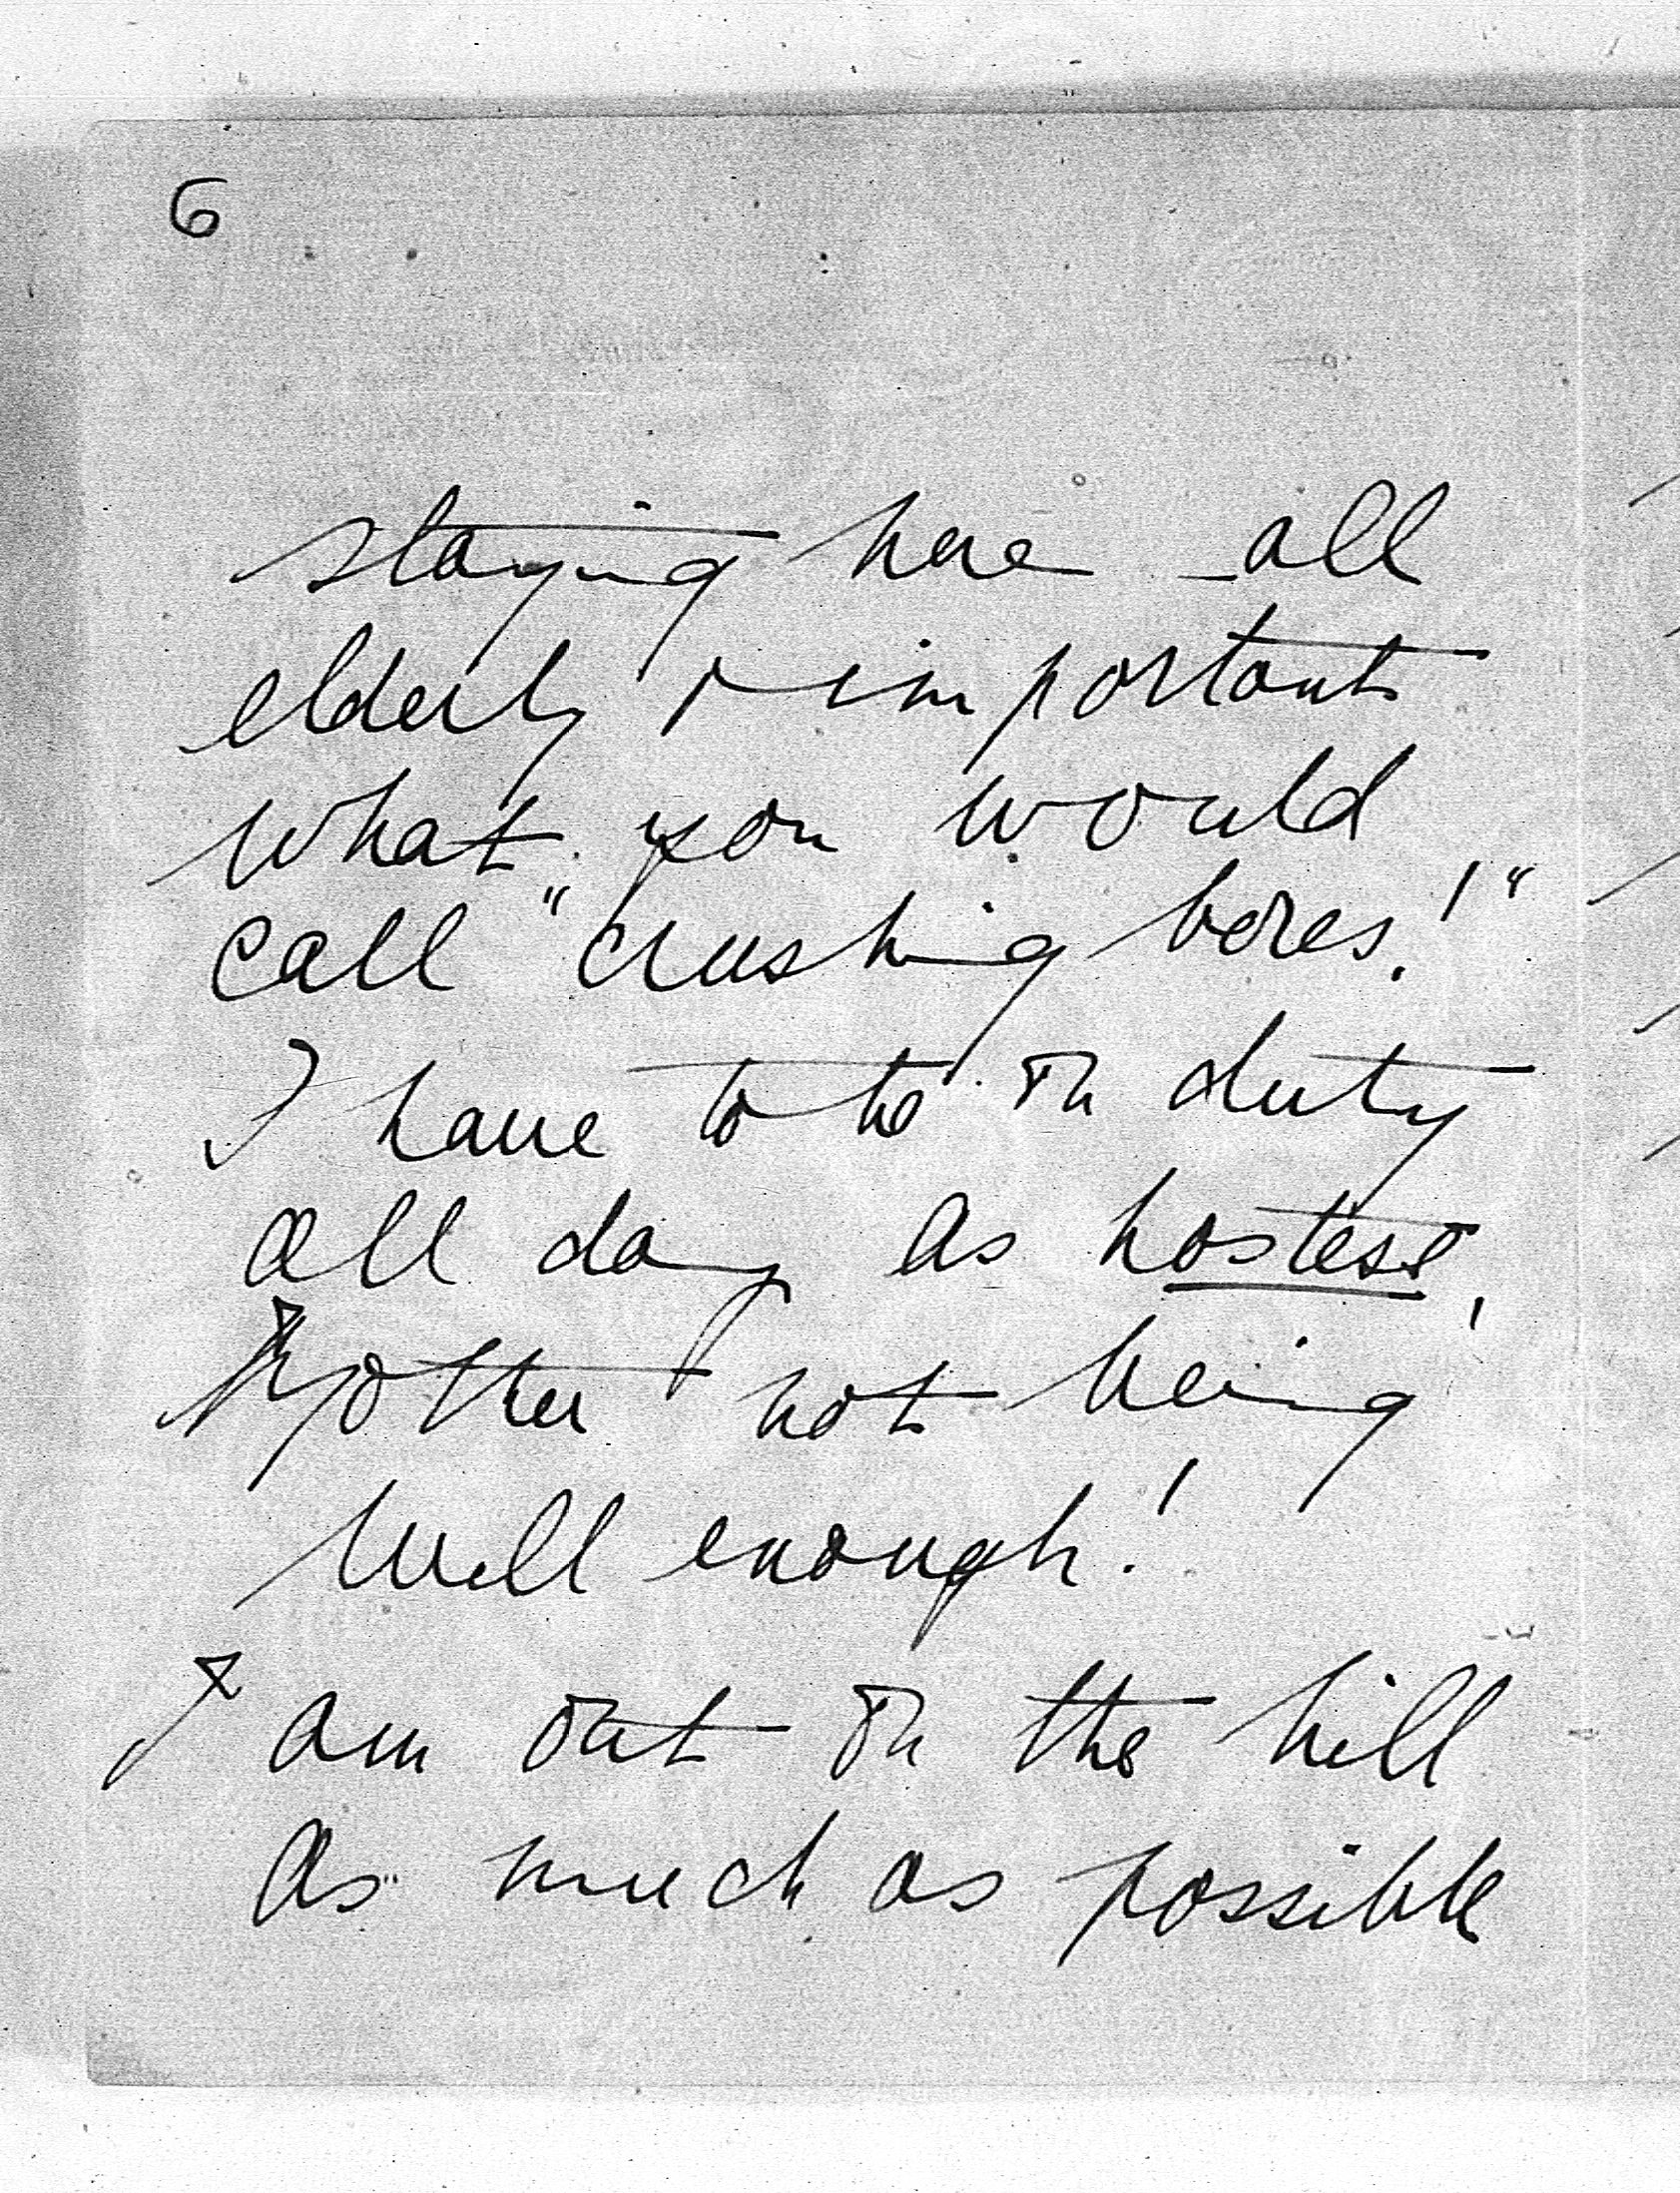 6
staying here - all
elderly & important
what you would
call "crushing bores!"
I have to be on duty
all day as hostess,
Mother not being
well enough!
I am out on the hill
as much as possible